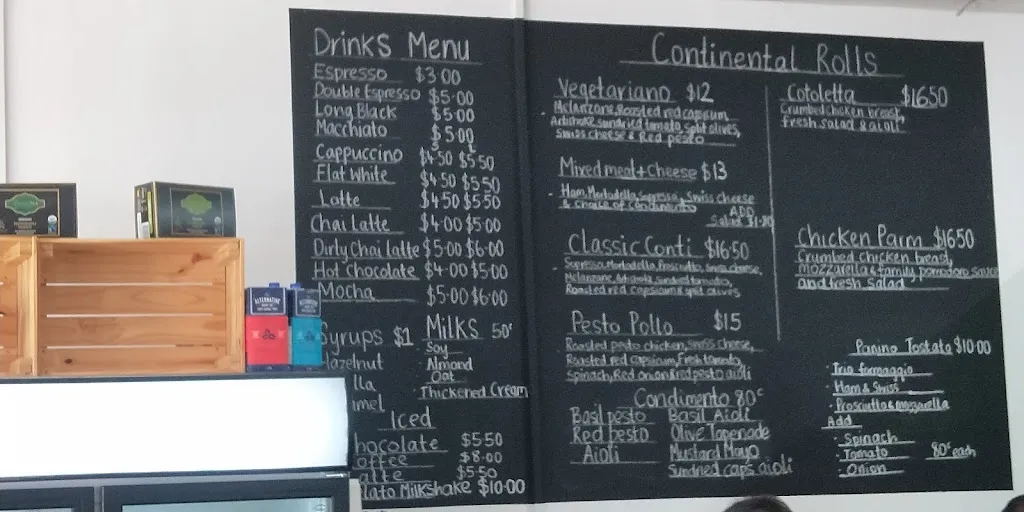 Drinks Menu
Espresso $3.00
Double Espresso $5.00
Long Black $5.00
Macchiato $5.00
Cappuccino $4.50 $5.50
Flat White $4.50 $5.50
Latte $4.50 $5.50
Chai Latte $4.00 $5.00
Dirty Chai Latte $5.00 $6.00
Hot Chocolate $4.00 $5.00
Mocha $5.00 $6.00
Syrups $1
azelnut
lla
mel
Milks 50c
Soy
Almond
Oat
Thickened Cream
Iced
hocolate $5.50
offee $8.00
atte $5.50
lato Milkshake $10.00
Continental Rolls
Vegetariano $12
Melanzane, Roasted red capsicum,
Artichoke, sundried tomato, split olives,
Swiss cheese & Red pesto
Mixed meat + Cheese $13
Ham, Mortadella, Sopressa, Swiss cheese
& choice of condimento
ADD
Classic Conti $16.50
Sopressa, Mortadella, Prosciutto, Swiss cheese,
Melanzane, Artichoke, sundried tomato,
Roasted red capsicum & split olives
Pesto Pollo $15
Roasted pesto chicken, swiss cheese,
Roasted red capsicum, Fresh tomato,
Spinach, Red onion & red pesto aioli
Condimento 80c
Basil pesto
Red pesto
Aioli
Basil Aioli
Olive Tapenade
Mustard Mayo
Sundried caps aioli
Cotoletta $16.50
Crumbed chicken breast,
fresh salad & aioli
Chicken Parm $16.50
Crumbed chicken breast,
mozzarella & family pomodoro sauce
and fresh salad
Panino Tostato $10.00
Trio formaggio
Ham & Swiss
Prosciutto & mozzarella
Add
Spinach
Tomato 80c each
Onion
ALTERNATIVE